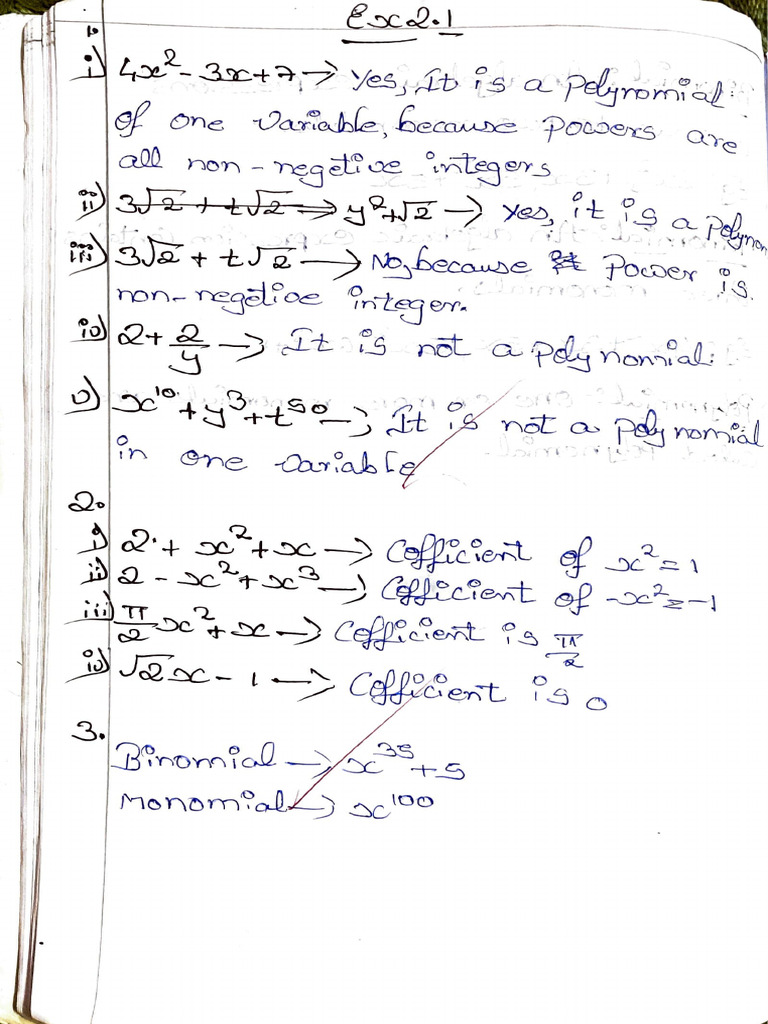 Ex 2.1
1.
i) 4x² - 3x + 7 → Yes, It is a polynomial
of one variable, because powers are
all non-negetive integers
ii) 3√2 + t√2 → y² + √2 → Yes, it is a polynom
iii) 3√2 + t√2 → No, because Power is
non-negetive integer.
iv) 2 + 2/y → It is not a polynomial.
v) x¹⁰ + y³ + t⁵⁰ → It is not a polynomial
in one variable
2.
i) 2 + x² + x → Cofficient of x² = 1
ii) 2 - x² + x³ → Cofficient of -x² = -1
iii) π/2 x² + x → Cofficient is π/2
iv) √2x - 1 → Cofficient is 0
3.
Binomial → x³⁵ + 5
Monomial → x¹⁰⁰